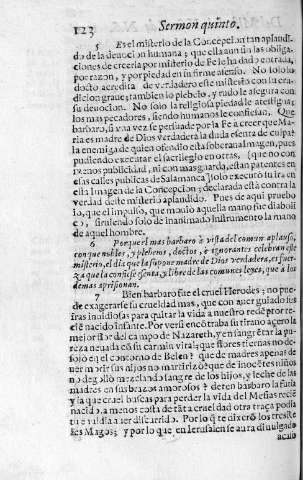 123 Sermon quinto.
5 Es el misterio de la Concepcion tan aplaudi-
do de la deuocion humana; que ella aun sin las obliga-
ciones de creerla por misterio de Fe le ha dado entrada,
por razon, y por piedad en su firme asenso. No solo lo
docto acredita de verdadero este misterio con su eru-
dicion graue; tambien lo plebeio, y rudo le asegura con
su deuocion. No solo la religiosa piedad le atestigua;
los mas pecadores, siendo humanos le confiesan. Que
barbaro, si vna vez se persuade por la Fe a creer que Ma-
ria es madre de Dios verdadera la duda esenta de culpa?
la enemiga de quien ofendio esta soberana Imagen, pues
pudiendo executar el sacrilegio en otras, (que no con
menos publicidad, ni con mas guarda, estan patentes en
esas calles publicas de Salamanca) solo executò su ira en
ella Imagen de la Concepcion; declarada està contra la
verdad deste misterio aplaudido. Pues de aqui pruebo
io, que el impulso, que mouio aquella mano fue diaboli-
co, siruiendo solo de inanimado instrumento la mano
de aquel hombre.
6 Porque el mas barbaro à vista del comun aplauso,
con que nobles, y plebeios, doctos, è ignorantes celebran este
misterio, el dia que la supone madre de Dios verdadera, es fuer-
za que la confiese esenta, y libre de las comunes leyes, que a los
demas aprisionan.
7 Bien barbaro fue el cruel Herodes; no pue-
de exagerarse su crueldad mas, que con auer guiado sus
iras inuidiosas para quitar la vida a nuestro redemptor re-
cie nacido infante. Por ver si encõtraba su tirano acero la
mejor flor del campo de Nazareth, y ensangrētar la pu-
reza neuada cō su carmin vital; que flores tiernas no de-
sojò en el contorno de Belen? que de madres apenas de
uer morir sus hijos no martirizò? que de inocētes niños
no degollò mezclando sangre de los hijos, y leche de las
madres en sus brazos amorosos? deren barbaro la furia
y la que cruel buscas para perder la vida del Mesias recie
nacido, a menos costa de tāta crueldad otra traça podia
tu embidia auer discurrido. Por lo q̃ te dixerō los tres
Reies Magos; y por lo que en Ierusalen se aura diuulgado
acaso